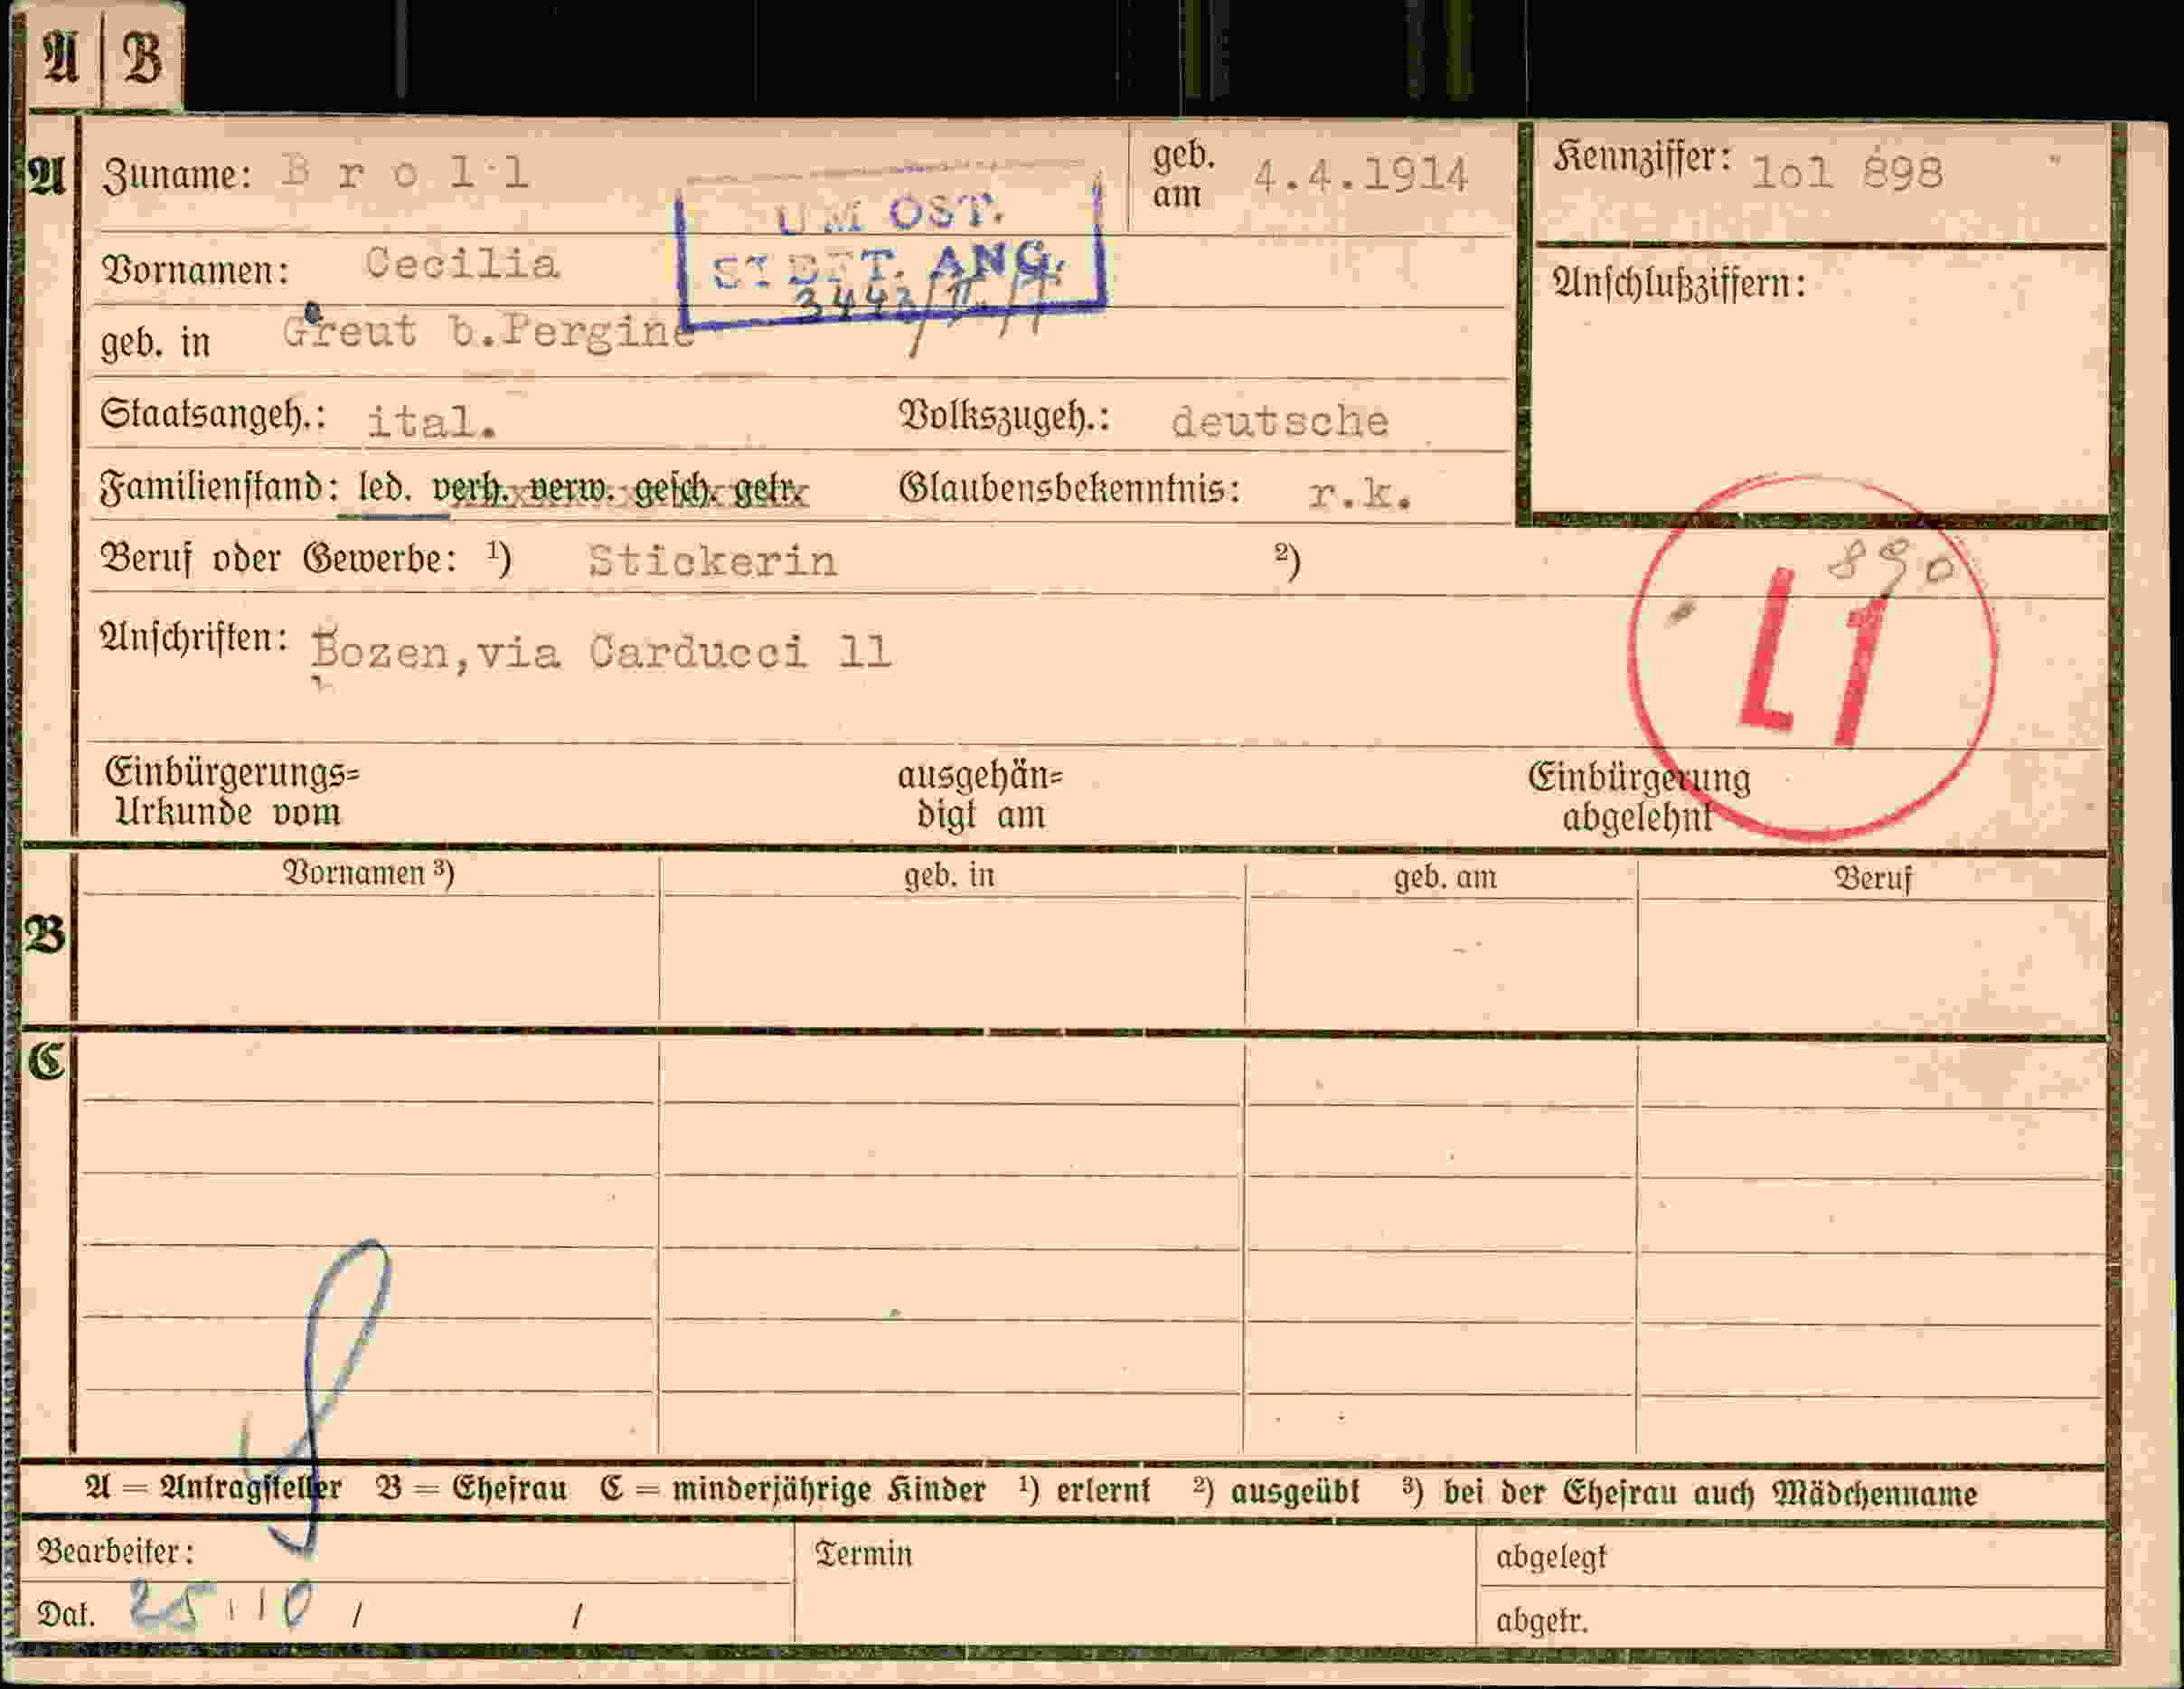 A B
A Zuname: Broll geb. am 4.4.1914 Kennziffer: lol 898
UM OST.
Vornamen: Cecilia
ANG.
Anschlußziffern:
geb. in Greut b.Pergine
Staatsangeh.: ital. Volkszugeh.: deutsche
Familienstand: led. verh. verw. gesch. getr. Glaubensbekenntnis: r.k.
Beruf oder Gewerbe: ¹) Stickerin ²)
890
Anschriften: Bozen,via Carducci 11
L1
Einbürgerungs= ausgehän= Einbürgerung
Urkunde vom digt am abgelehnt
Vornamen ³) geb. in geb. am Beruf
B
C
A = Antragsteller B = Ehefrau C = minderjährige Kinder ¹) erlernt ²) ausgeübt ³) bei der Ehefrau auch Mädchenname
Bearbeiter: Termin abgelegt
Dat. 25.10 / / abgetr.